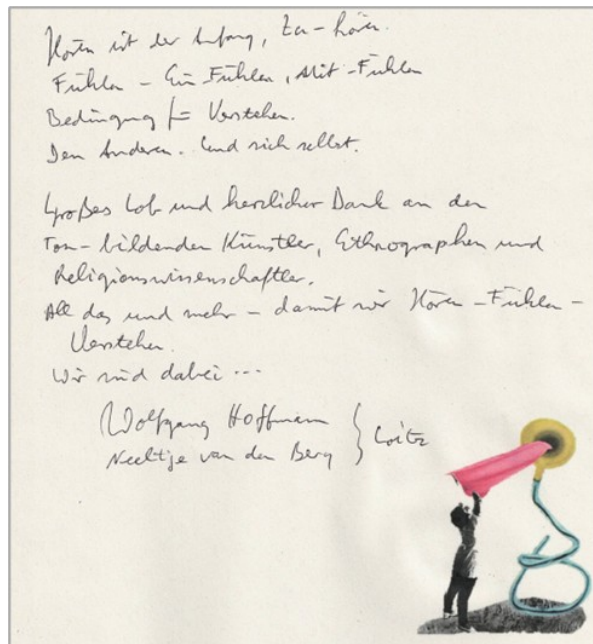 Hören ist der Anfang, Zu-hören.
Fühlen - Ein-Fühlen, Mit-Fühlen
Bedingung f= Verstehen.
Den Anderen. Und sich selbst.
Großes Lob und herzlicher Dank an den
Ton-bildenden Künstler, Ethnographen und
Religionswissenschaftler.
All das und mehr - damit wir Hören-Fühlen-
Verstehen.
Wir sind dabei ...
Wolfgang Hoffmann } Loitz
Neeltje van den Berg